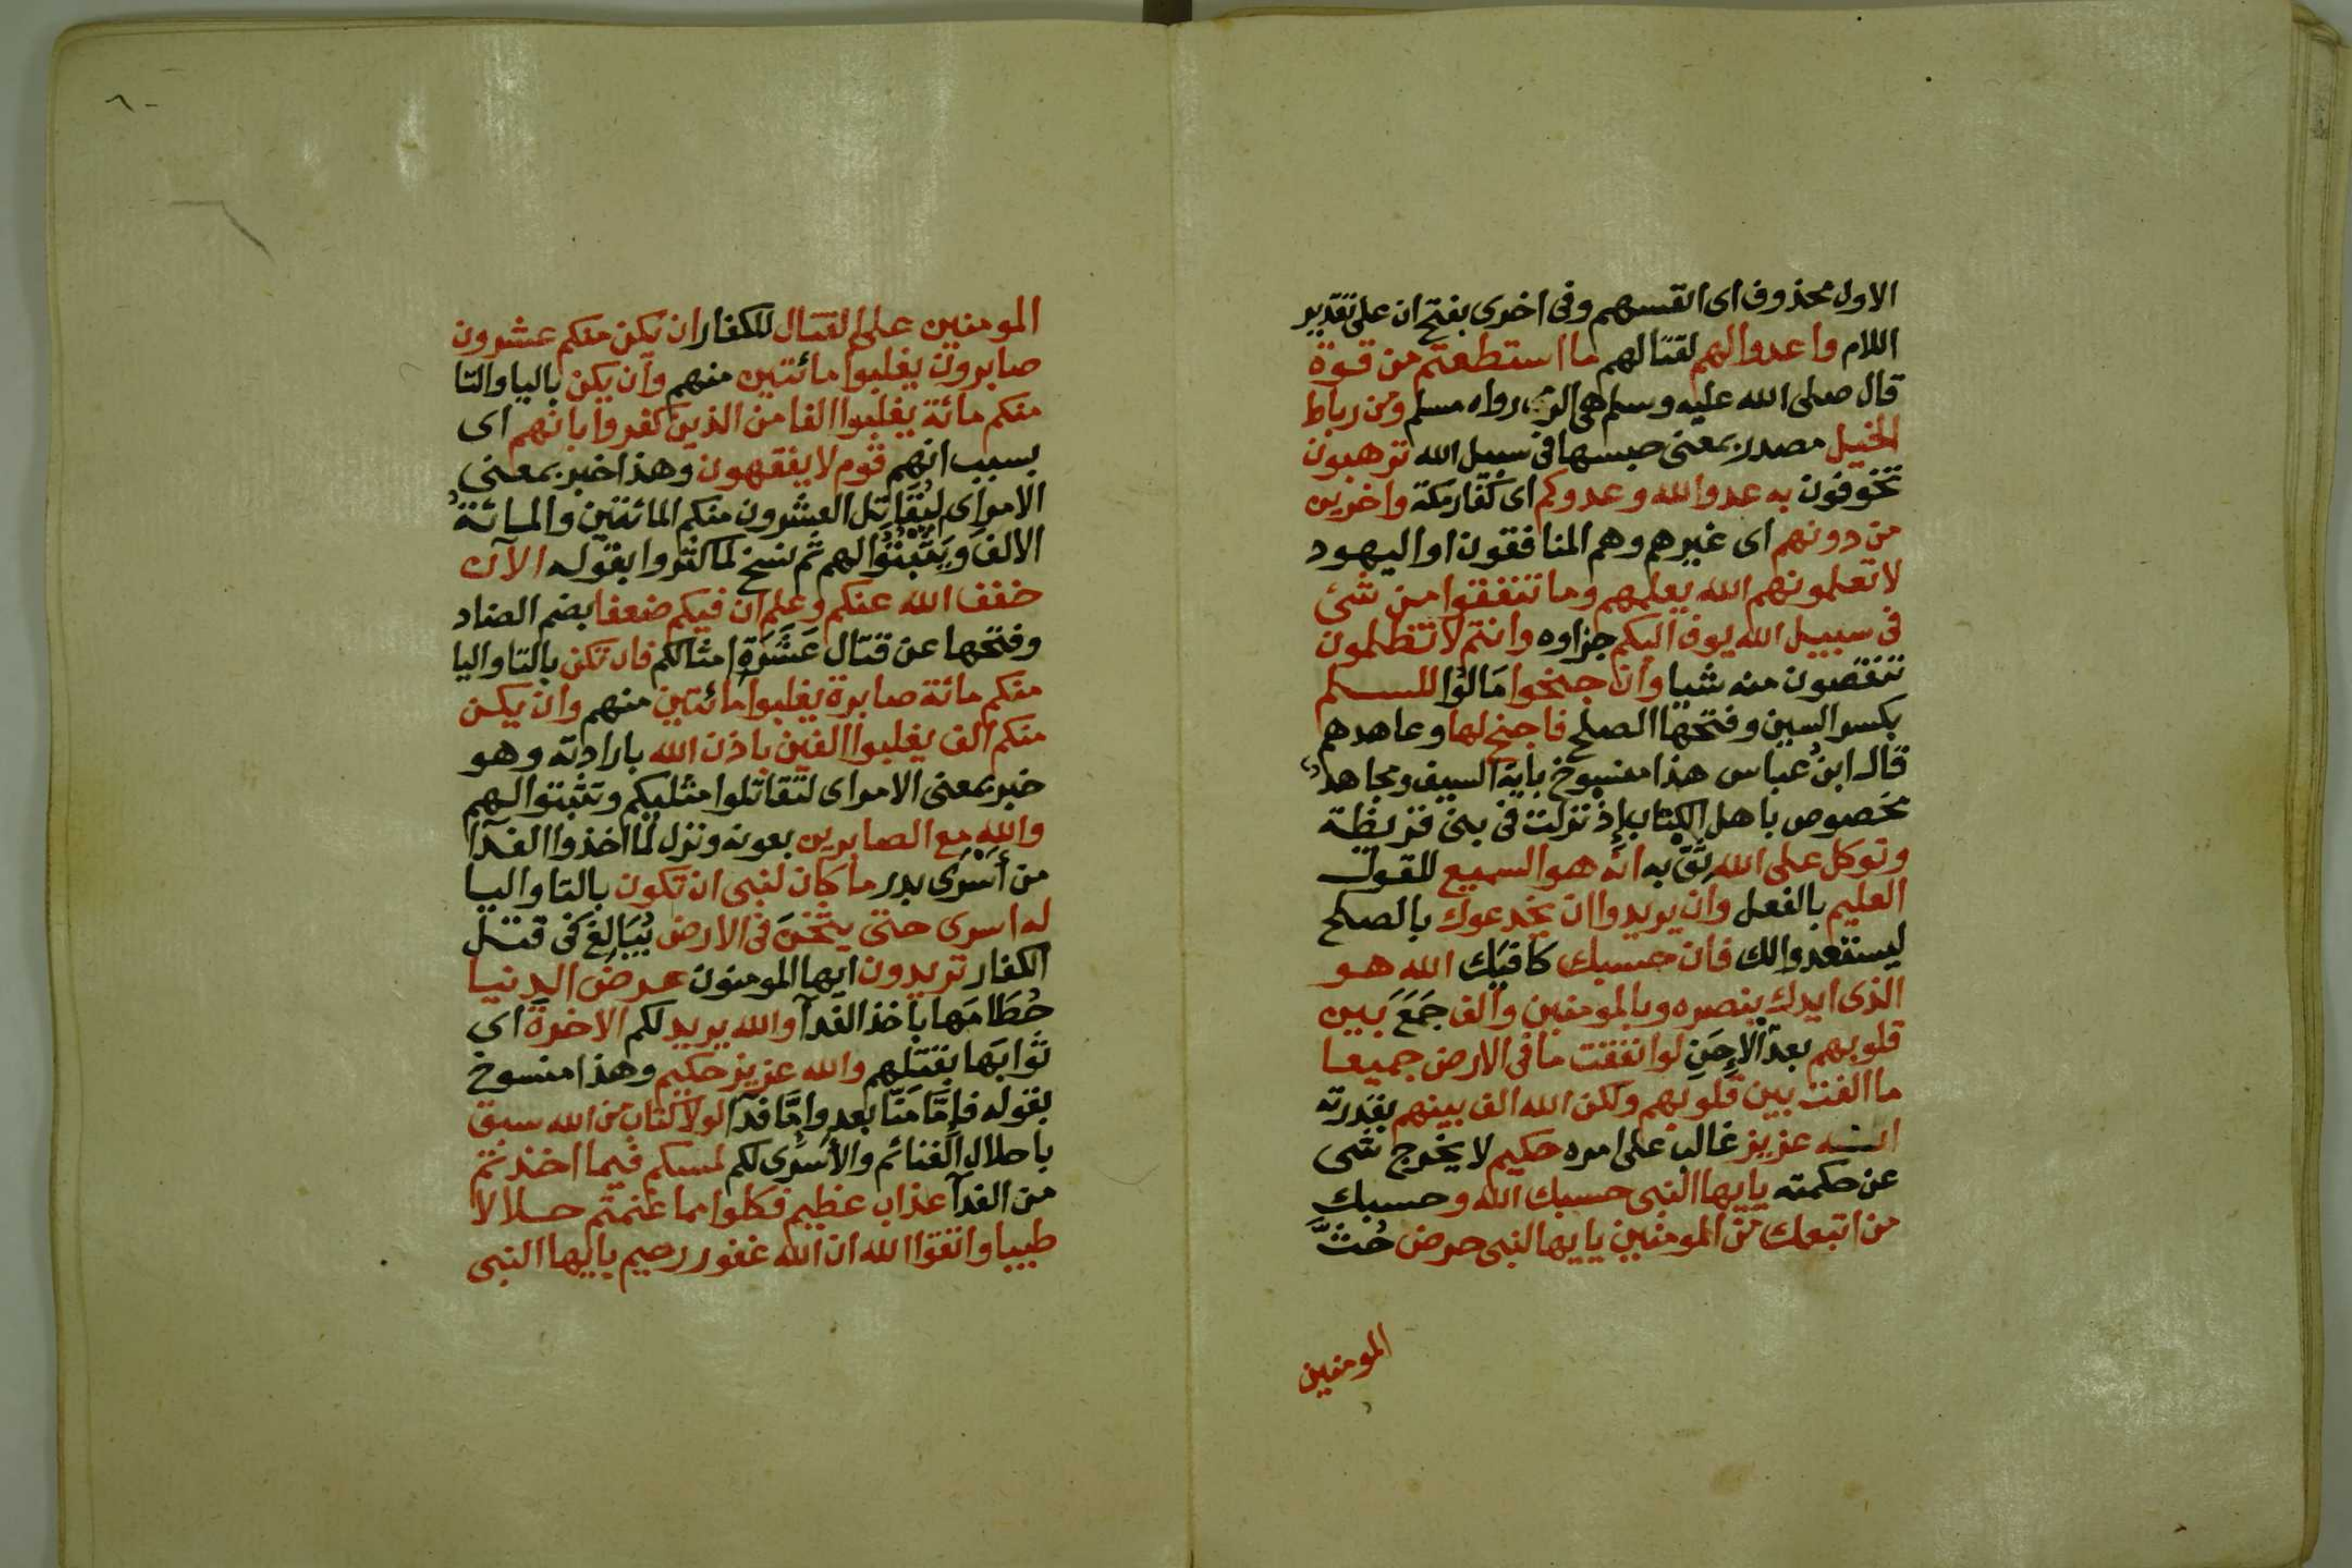 الاول محذوف اى انفسهم وفى اخرى بفتح ان على تقدير
اللام واعدوا لهم لقتالهم ما استطعتم من قوة
قال صلى الله عليه وسلم هى الرمى رواه مسلم ومن رباط
الخيل مصدر بمعنى حبسها فى سبيل الله ترهبون
تخوفون به عدوالله وعدوكم اى كفار مكة واخرين
من دونهم اى غيرهم وهم المنافقون او اليهود
لا تعلمونهم الله يعلمهم وما تنفقوا من شئ
فى سبيل الله يوف اليكم جزاوه وانتم لا تظلمون
تنقصون منه شيا وان جنحوا مَالوُا للسلم
بكسر السين وفتحها الصلح فاجنح لها وعاهدهم
قال ابن عباس هذا منسوخ باية السيف ومجاهد
مخصوص باهل الكتاب إذ نزلت فى بنى قريظة
وتوكل على الله ثق به انه هو السميع للقول
العليم بالفعل وان يريدوا ان يخدعوك بالصلح
ليستعدوا لك فان حسبك كافيك الله هو
الذى ايدك بنصره وبالمومنين والف جَمَعَ بَين
قلوبهم بعد الاِحَنِ لو انفقت ما فى الارض جميعا
ما الفت بين قلوبهم ولكن الله الف بينهم بقدرته
انه عزيز غالب على امره حكيم لا يخرج شى
عن حكمته يايها النبى حسبك الله وحسبك
من اتبعك من المومنين يايها لنبى حرض حُثَّ
المومنين
٦٠
المومنين على القتال للكفار ان يكن منكم عشرون
صابرون يغلبوا مائتين منهم وان يكن باليا والتا
منكم مائة يغلبوا الفا من الذين كفروا بانهم اى
بسبب انهم قوم لا يفقهون وهذا خبر بمعنى
الامر اى ليُقَاتِل العشرون منكم المائتين والمائةُ
الالفَ وَيَثْبُتُوُا لهم ثم نسخ لما كثروا بقوله الآن
خفف الله عنكم وعلم ان فيكم ضعفا بضم الضاد
وفتحها عن قتال عَشَرَةِ امثالكم فان تكن بالتا واليا
منكم مائة صابرة يغلبوا مائتين منهم وان يكن
منكم الف يغلبوا الفين باذن الله بارادته وهو
خبر بمعنى الامر اى لتقاتلوا مثليكم وتثبتوا لهم
والله مع الصابرين بعونه ونزل لما اخذوا الفدآ
من أَسْرَى بدر ما كان لنبى ان تكون بالتا واليا
له اسرى حتى يثخن فى الارض يُبَالِغ فى قتل
الكفار تريدون ايها المومنون عرض الدنيا
حُطَامَها باخذ الفدآ والله يريد لكم الاخرةَ اى
ثوابَها بقتلهم والله عزيز حكيم وهذا منسوخ
بقوله فاِمَّا مَنّا بعد واِمَّا فدآ لولا كتاب من الله سبق
باحلال الغنائم والأَسْرَى لكم لمسكم فيما اخذتم
من الفدآ عذاب عظيم فكلوا مما غنمتم حلالا
طيبا واتقوا الله ان الله غفور رحيم يايها النبى